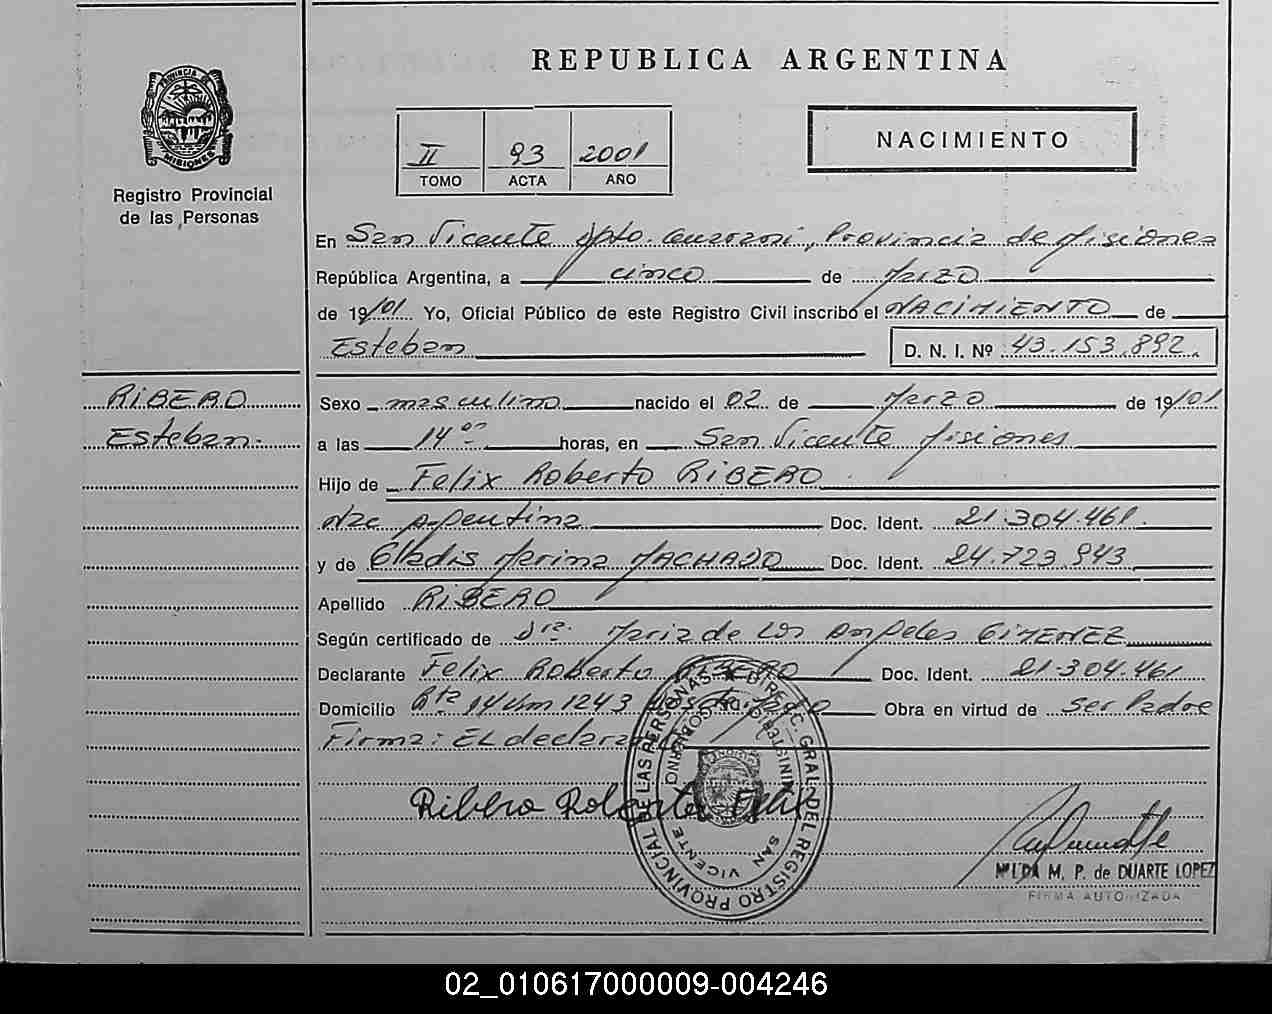 REPUBLICA ARGENTINA
PROVINCIA DE MISIONES
Registro Provincial
de las Personas
II 93 2001
TOMO ACTA AÑO
NACIMIENTO
En San Vicente Dpto. Guaraní, Provincia de Misiones
República Argentina, a cinco de Marzo
de 19/01 Yo, Oficial Público de este Registro Civil inscribo el NACIMIENTO de
Esteban D. N. I. Nº 43.153.892.
RIBERO
Esteban.
Sexo masculino nacido el 02 de Marzo de 19/01
a las 14 horas, en San Vicente Misiones
Hijo de Felix Roberto RIBERO
Nac Argentina Doc. Ident. 21.304.461.
y de Gladis Marina MACHADO Doc. Ident. 24.723.943
Apellido RIBERO
Según certificado de Dra. Maria de Los Angeles GIMENEZ
Declarante Felix Roberto RIBERO Doc. Ident. 21.304.461
Domicilio Rta 14 Km 1243 Obra en virtud de ser Padre
Firma: EL declarante
Ribero Roberto Felix
DIREC. GRAL. DEL REGISTRO PROVINCIAL DE LAS PERSONAS
MINISTERIO DE GOBIERNO
SAN VICENTE
M. P. de DUARTE LOPEZ
FIRMA AUTORIZADA
02_010617000009-004246